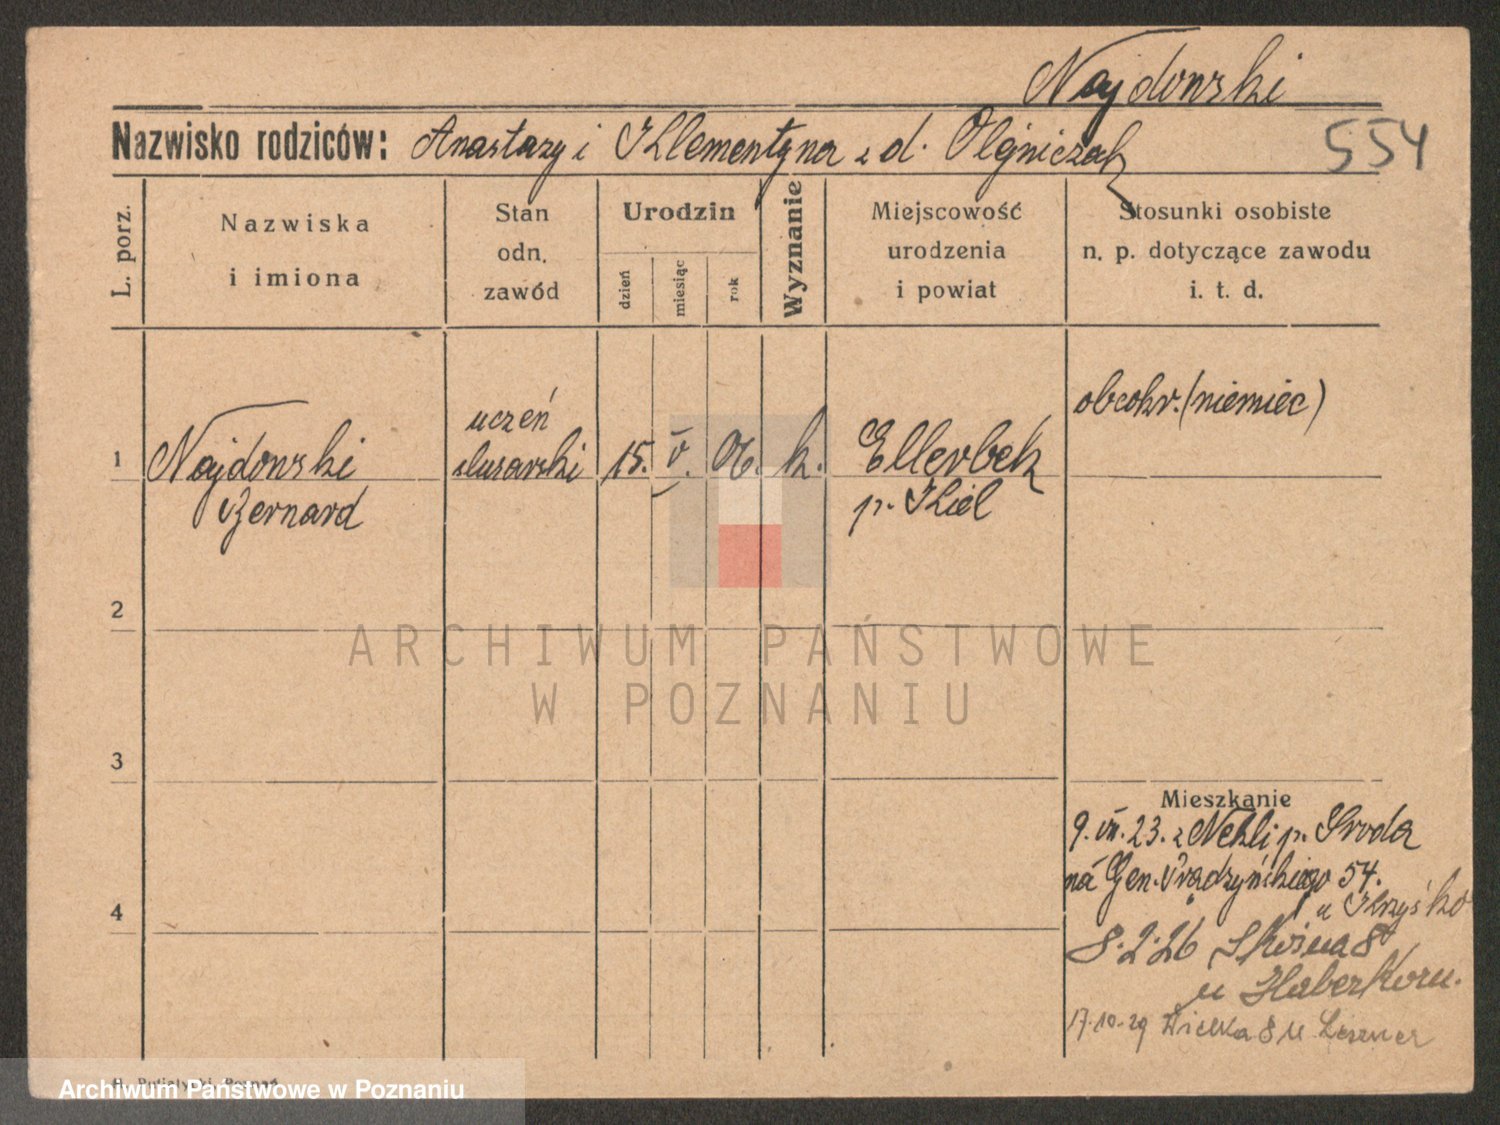 Najdowski
Nazwisko rodziców: Anastazy i Klementyna z d. Olejniczak
554
L. porz.
Nazwiska
i imiona
Stan
odn.
zawód
Urodzin
dzień
miesiąc
rok
Wyznanie
Miejscowość
urodzenia
i powiat
Stosunki osobiste
n. p. dotyczące zawodu
i. t. d.
obcokr. (niemiec)
1 Najdowski uczeń ślusarski 15. V. 06. k. Ellerbek
Bernard p. Kiel
2
3
4
Mieszkanie
9. VII. 23. z Nekli p. Środa
na Gen. Prądzyńskiego 54.
u Krzyśko
8.2.26 Skośna 8
u Haberkorn.
17.10.29 Wielka 8 u
ARCHIWUM PAŃSTWOWE
W POZNANIU
Archiwum Państwowe w Poznaniu